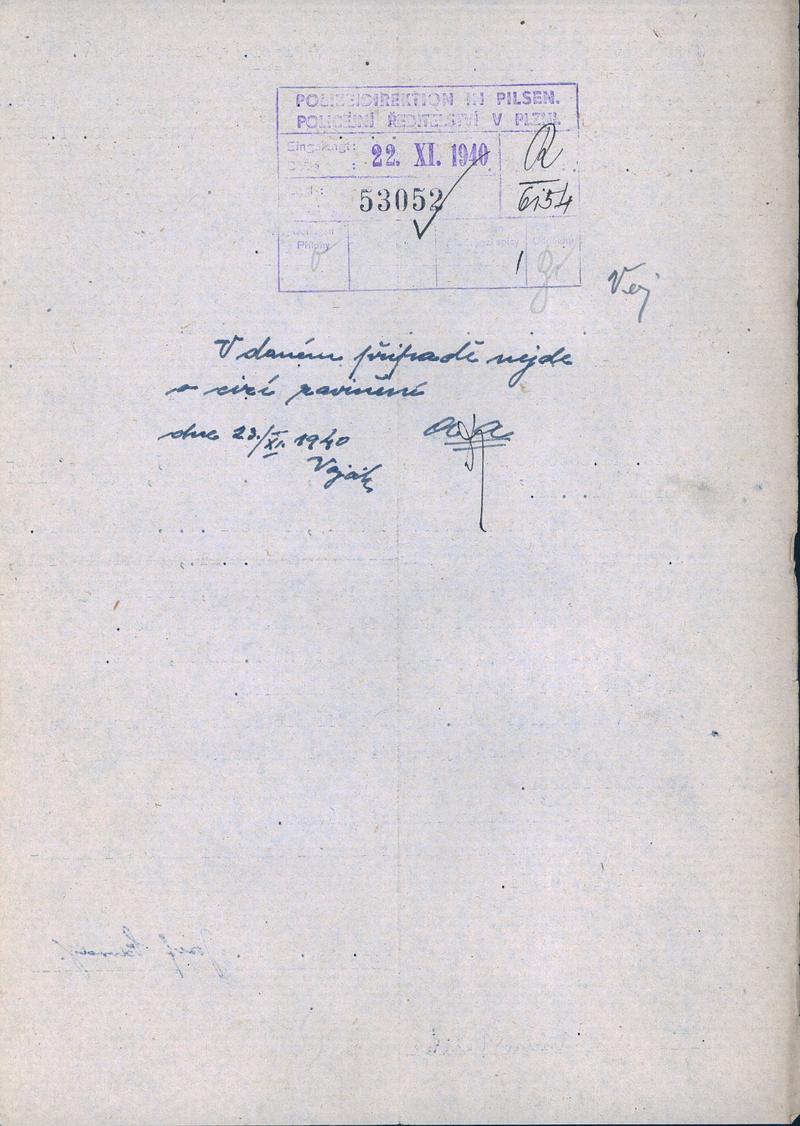 POLIZEIDIREKTION IN PILSEN.
POLICEJNÍ ŘEDITELSTVÍ V PLZNI.
Eingelangt:
Došlo :
22. XI. 1940
R
53052
6154
Přílohy
1
Vej
V daném případě nejde
o cizí zavinění
dne 23./XI. 1940
a/a
Voják